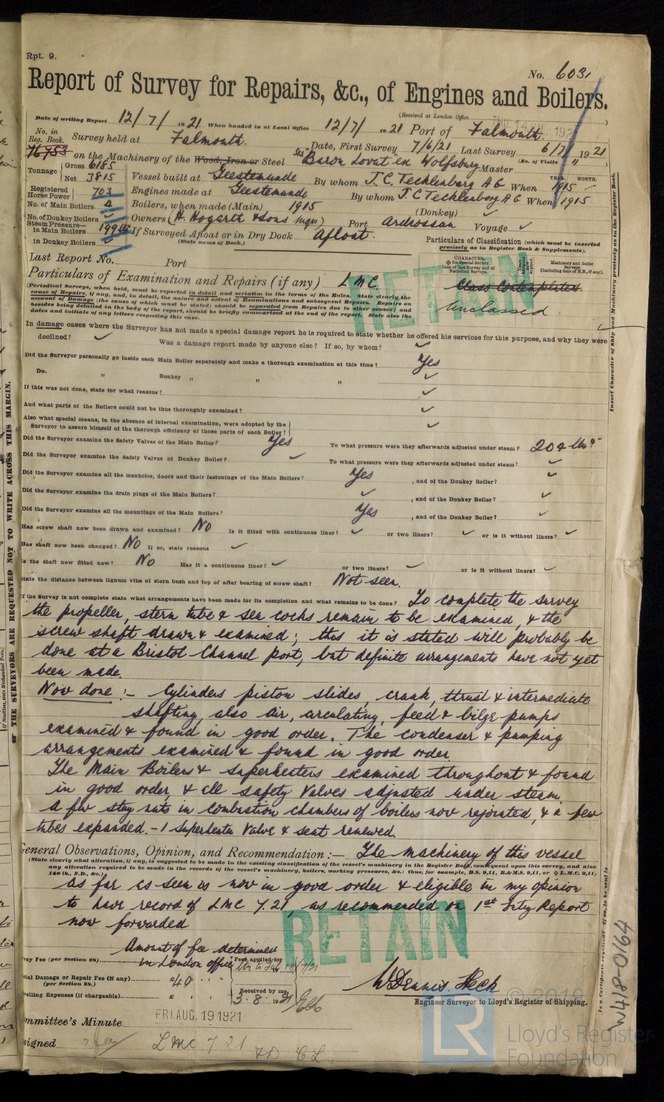 Rpt. 9.
No. 6031
Report of Survey for Repairs, &c., of Engines and Boilers.
(Received at London Office
Date of writing Report 12/7/ 1921 When handed in at Local Office 12/7/ 1921 Port of Falmouth
No. in Reg. Book. Survey held at Falmouth Date, First Survey 7/6/21 Last Survey 6/7/ 1921
76753 on the Machinery of the Wood, Iron or Steel Baron Lovat ex Wolfsburg Master (No. of Visits
Tonnage Gross 6185 Net 3815 Vessel built at Geestemunde By whom J.C. Tecklenborg A G When 1915
YEAR. MONTH.
Registered Horse Power 703 Engines made at Geestemunde By whom J.C Tecklenborg A G When 1915
No. of Main Boilers 4 Boilers, when made (Main) 1915 (Donkey) ✓
No. of Donkey Boilers ✓ Owners H. Hogarth & Sons Port Ardrossan Voyage ✓
Steam Pressure in Main Boilers 199 lb If Surveyed Afloat or in Dry Dock Afloat
in Donkey Boilers ✓ (State name of Dock.)
Particulars of Classification (which must be inserted precisely as in Register Book & Supplements).
Last Report No. Port
Particulars of Examination and Repairs (if any) LMC
Class Contemplated
Unclassed
RETAIN
In damage cases where the Surveyor has not made a special damage report he is required to state whether he offered his services for this purpose, and why they were
declined? ✓ Was a damage report made by anyone else? If so, by whom? ✓
Did the Surveyor personally go inside each Main Boiler separately and make a thorough examination at this time? Yes
Do. " Donkey " " " ✓
If this was not done, state for what reasons? ✓
And what parts of the Boilers could not be thus thoroughly examined? ✓
Also what special means, in the absence of internal examination, were adopted by the
Surveyor to assure himself of the thorough efficiency of those parts of each Boiler? ✓
Did the Surveyor examine the Safety Valves of the Main Boiler? Yes To what pressure were they afterwards adjusted under steam? 204 lbs
Did the Surveyor examine the Safety Valves of Donkey Boiler? ✓ To what pressure were they afterwards adjusted under steam? ✓
Did the Surveyor examine all the manholes, doors and their fastenings of the Main Boilers? Yes , and of the Donkey Boiler? ✓
Did the Surveyor examine the drain plugs of the Main Boilers? ✓ , and of the Donkey Boiler? ✓
Did the Surveyor examine all the mountings of the Main Boilers? Yes , and of the Donkey Boiler? ✓
Has screw shaft now been drawn and examined? No Is it fitted with continuous liner? ✓ or two liners? ✓ or is it without liners? ✓
Has shaft now been changed? No If so, state reasons ✓
Is the shaft now fitted new? No Has it a continuous liner? ✓ or two liners? ✓ or is it without liners? ✓
State the distance between lignum vitæ of stern bush and top of after bearing of screw shaft? Not seen
If the Survey is not complete state what arrangements have been made for its completion and what remains to be done? To complete the survey
the propeller, stern tube & sea cocks remain to be examined, & the
screw shaft drawn & examined; this it is stated will probably be
done at a Bristol Channel port, but definite arrangements have not yet
been made.
Now done :- Cylinders piston slides, crank, thrust & intermediate
shafting, also air, circulating, feed & bilge pumps
examined & found in good order. The condenser & pumping
arrangements examined & found in good order
The Main Boilers & Superheaters examined throughout & found
in good order, & all safety valves adjusted under steam.
A few stay nuts in combustion chambers of boilers now rejointed, & a few
tubes expanded - 1 Superheater Valve & seat renewed.
General Observations, Opinion, and Recommendation :— The machinery of this vessel
as far as seen is now in good order & eligible in my opinion
to have record of LMC 7.21, as recommended on 1st Entry Report
now forwarded
RETAIN
Amount of fee determined
in London office
Survey Fee (per Section 28) Fees applied for
Special Damage or Repair Fee (if any) (per Section 28.) £4.0
Travelling Expenses (if chargeable) Received by me, 3.8.1921
Engineer Surveyor to Lloyd's Register of Shipping.
Committee's Minute FRI. AUG. 19 1921
Assigned LMC 7 21
FD CL
W418-0164
OF THE SURVEYORS ARE REQUESTED NOT TO WRITE ACROSS THIS MARGIN.
© 2019
LR
Lloyd's Register
Foundation